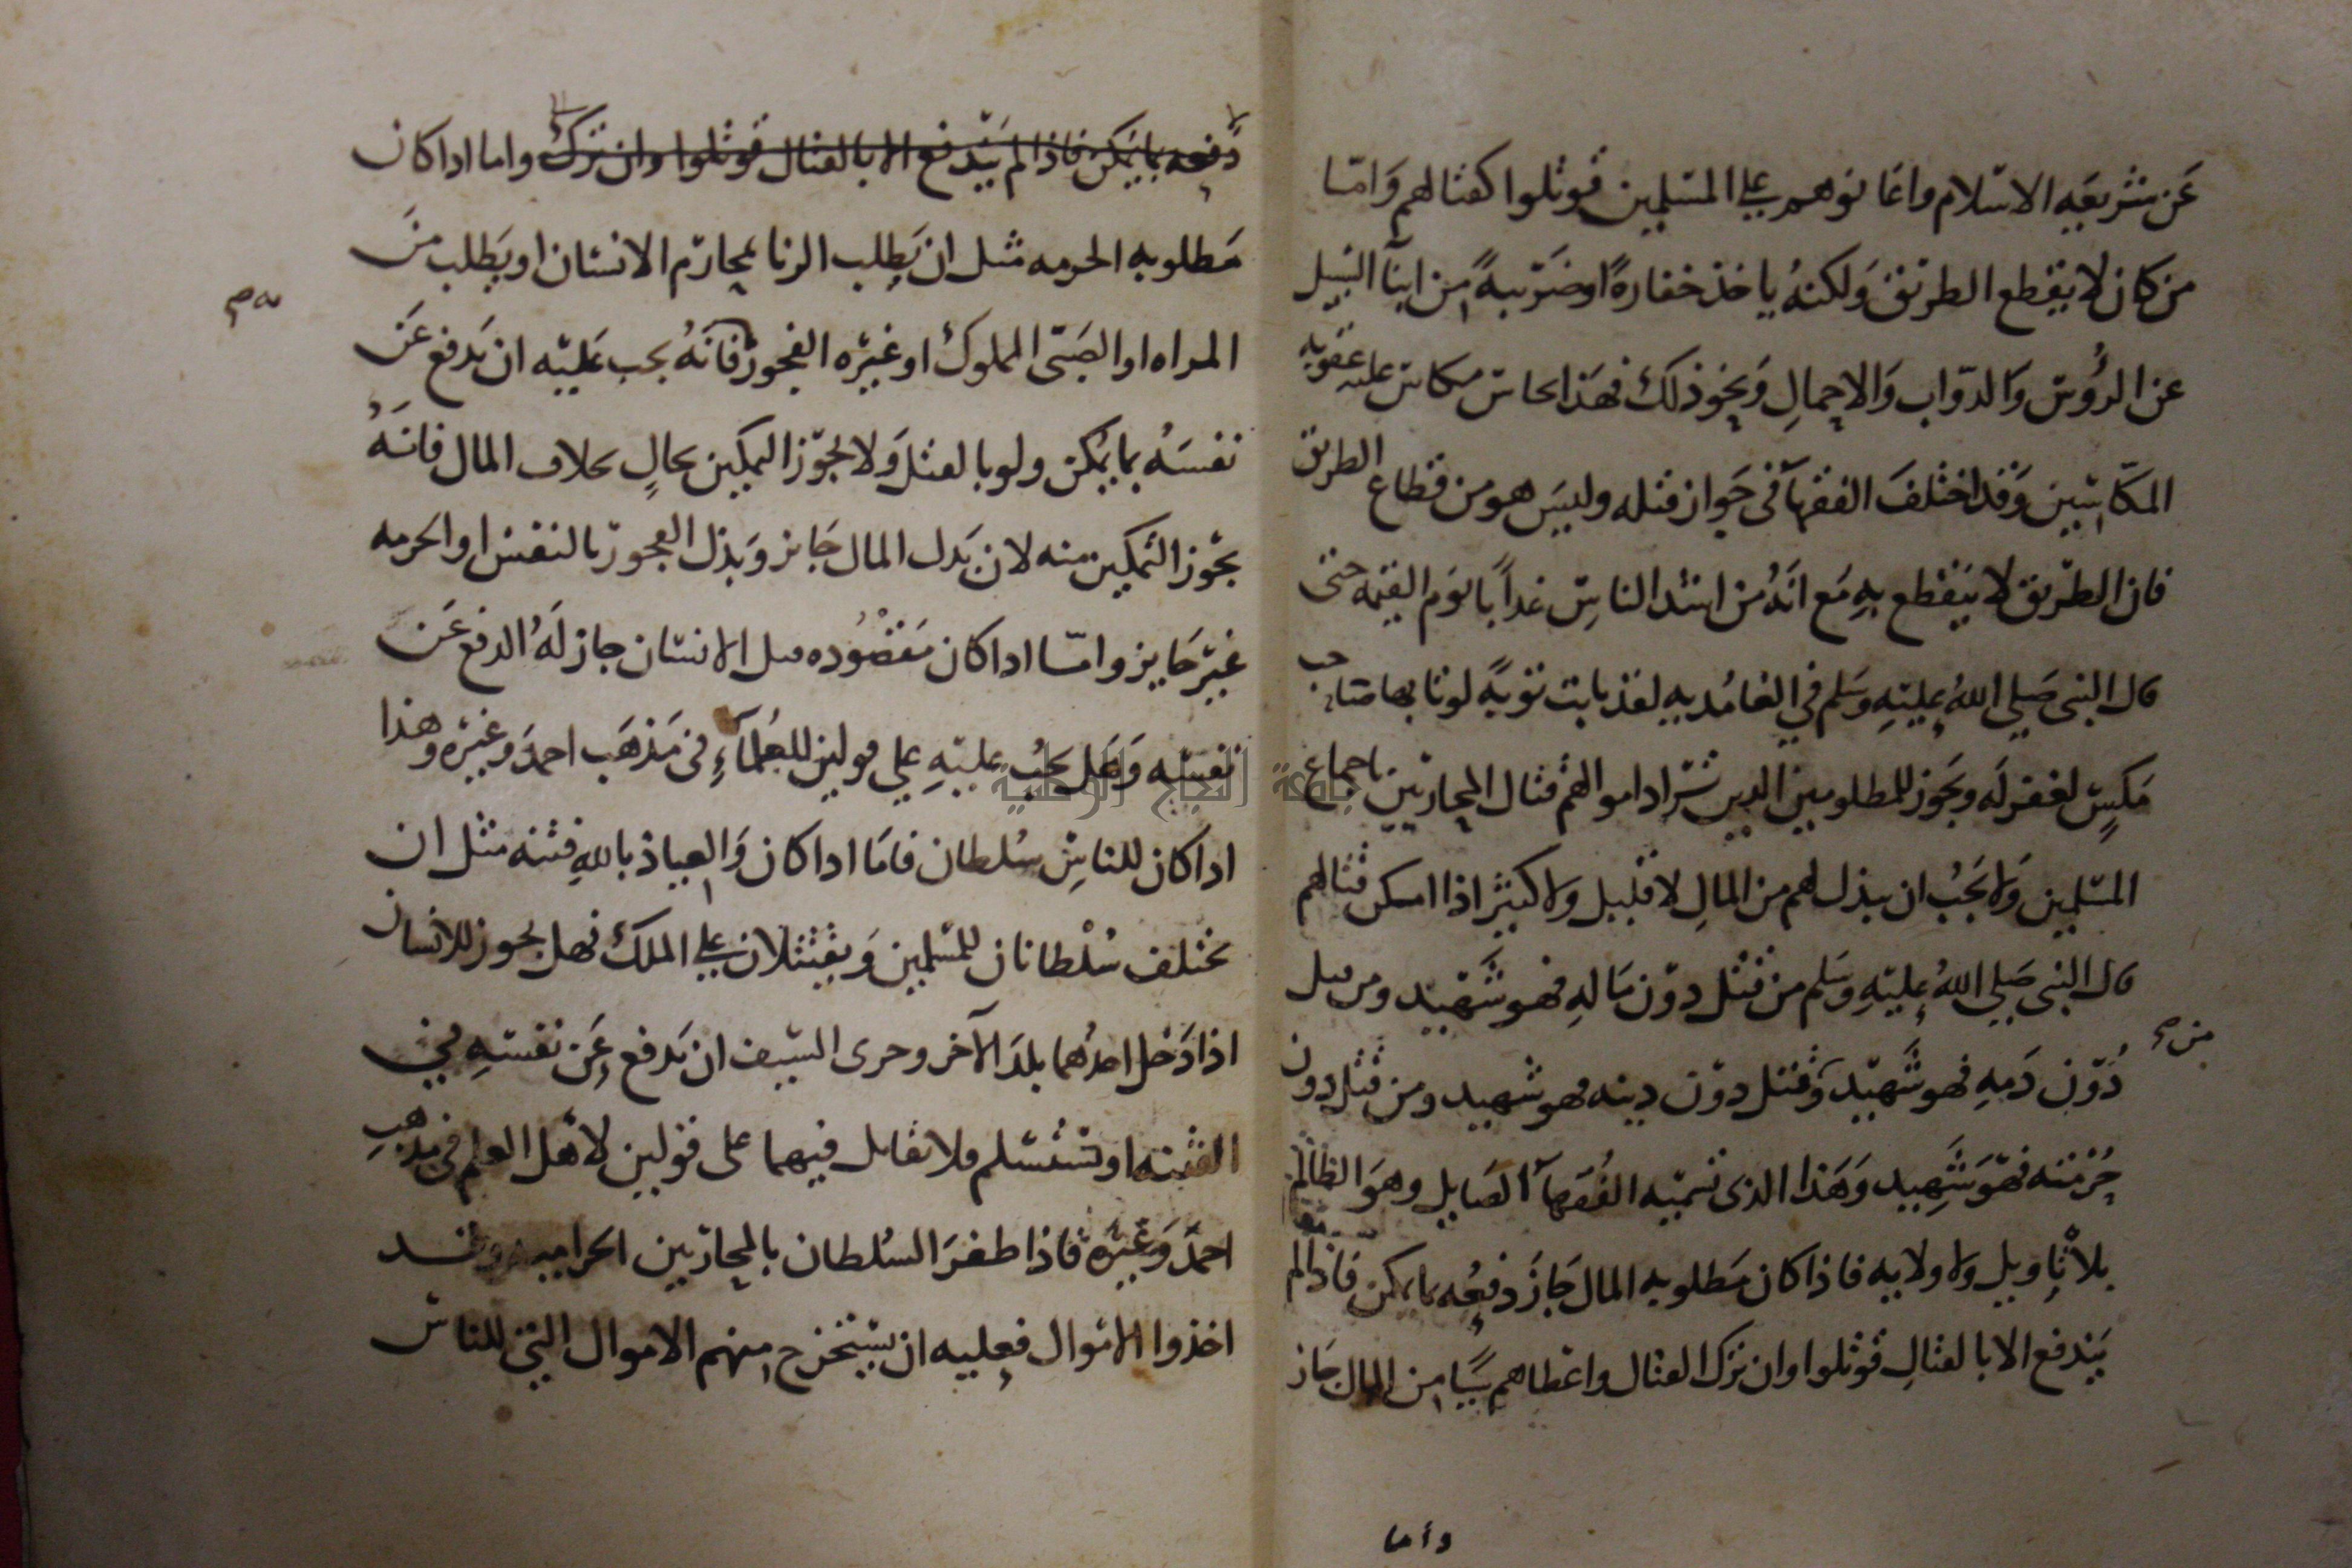 عن شريعه الاسلام واعانوهم على المسلمين قوتلوا كقتالهم وامّا
من كان لا يقطع الطريق ولكنه ياخذ خفارةً او ضريبةً من ابنآ السبيل
عن الرُوس والدوّاب والاحمالِ ونحو ذلك فهذا مكاس عليه عقوبه
المكّاسين وقد اختلف الفقهآ في جواز قتله وليس هو من قطاع الطريق
فان الطريق لا ينقطع بهِ مع انهُ من اشد الناسِ عذاباً يوم القيمه حتى
قال النبى صلي اللهُ عليهِ وسلم في الغامديه لقد تابت توبةً لو تابها صاحب
مكسٍ لغفر له ويجوز للمطلومين الدين تراد اموالهم قتال المحاربين باجماع
المسلمين ولا يجبُ ان يبذل لهم من المالِ لا قليل ولا كثير اذا امكن قتالهم
قال النبى صلي اللهُ عليهِ وسلم من قتل دون مالهِ فهو شهيد ومن قتل
دُون دمهِ فهو شهيد وقتل دون دينه فهو شهيد ومن قتل دون
حُرمته فهو شهِيد وهذا الذى تسميه الفُقهآ الصايل وهو الظالم
بلا تاويل ولا ولايه فاذا كان مطلوبه المال جاز دفعُه بما يمكن فاذا لم
يندفع الا بالقتالِ قوتلوا وان ترك القتال واعطاهم شيًا من المال جاز
وأما
دفعه بما يمكن فاذا لم يندفع الا بالقتال قوتلوا وان ترك واما اداكان
مطلوبه الحرمه مثل ان يطلب الزنا بمحارم الانسان او يطلب من
المراه او الصبى المملوك او غيره الفجور فانهُ يجب عليه ان يدفع عن
نفسهُ بما يمكن ولو بالقتل ولا يجوز التمكين بحالٍ بحلاف المال فانهُ
يجوز التمكين منه لان بدل المال جايز وبذل الفجور بالنفس او الحرمه
غير جايز وامّا اداكان مقصُوده قتل الانسان جاز لهُ الدفع عن
نفسه وهل يجبُ عليهِ علي قولين للعُلمآءِ في مذهب احمد وغيره وهذا
اداكان للناسِ سُلطان فاما اداكان والعياذ باللهِ فتنه مثل ان
يختلف سُلطانان للمسلمين ويقتتلان على الملك فهل يجوز للانسان
اذا دخل احدُهما بلد الآخر وجرى السيف ان يدفع عن نفسهِ في
الفتنه او تستسلم ولا تقاتل فيهما على قولين لاهل العلم في مذهب
احمد وغيره فاذا ظفر السُلطان بالمحاربين الحراميه وقد
اخذوا الاموال فعليه ان يستخرج منهم الاموال التي للناس